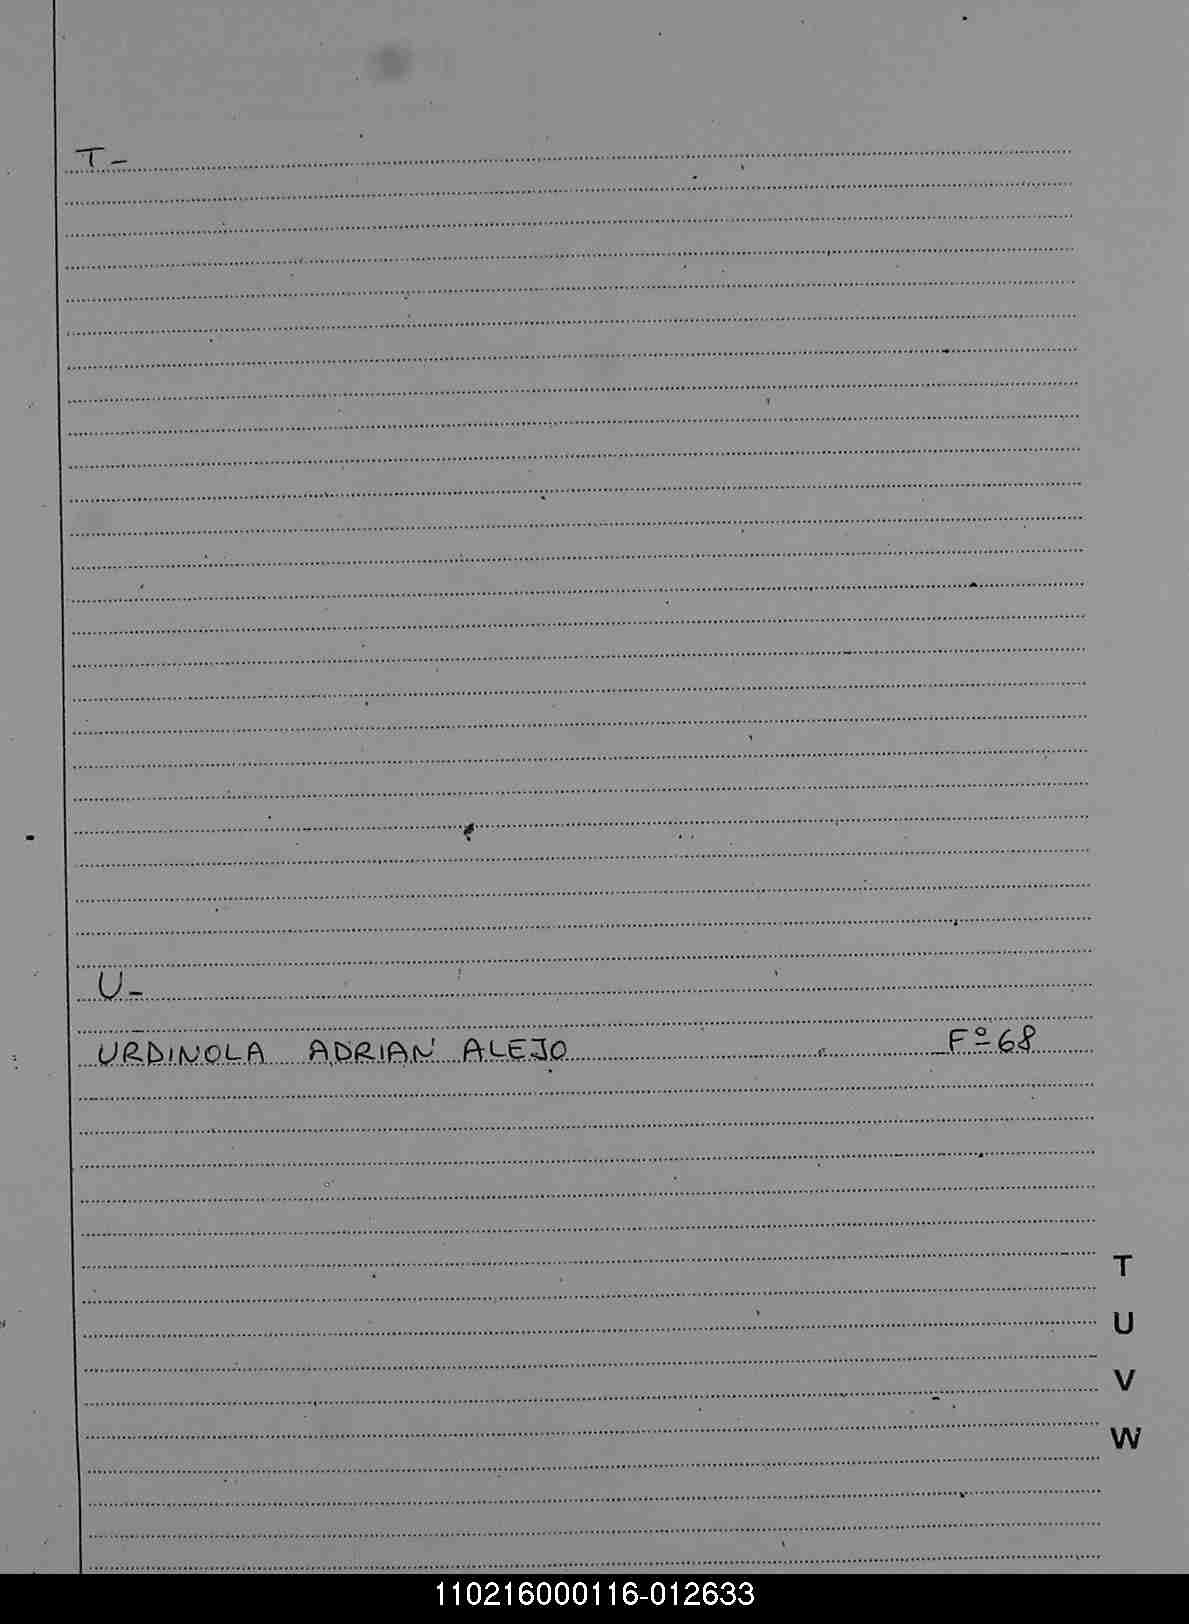 T-
U-
URDINOLA ADRIAN ALEJO Fº 68
T
U
V
W
110216000116-012633